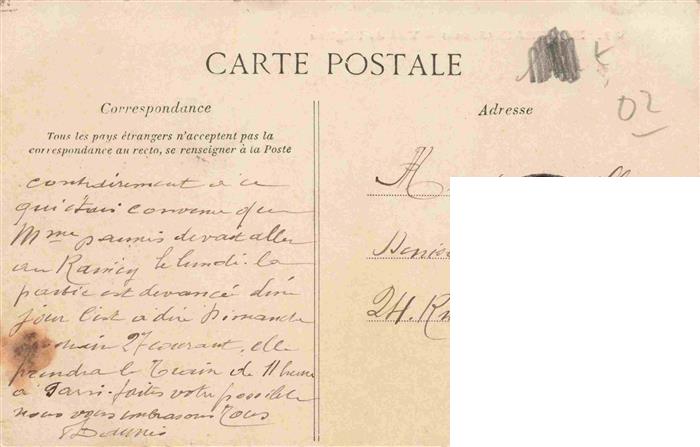 CARTE POSTALE
Correspondance
Tous les pays étrangers n'acceptent pas la
correspondance au recto, se renseigner à la Poste
contrairement à ce
qui était convenu que
Mme devait aller
au Raincy le lundi. la
partie est devancé d'une
jour c'est à dire Dimanche
prochain 27 courant, elle
prendra le Train de 11 heure
à Paris. faites votre possible
nous vous embrasons Tous
Adresse
24. Ru
02